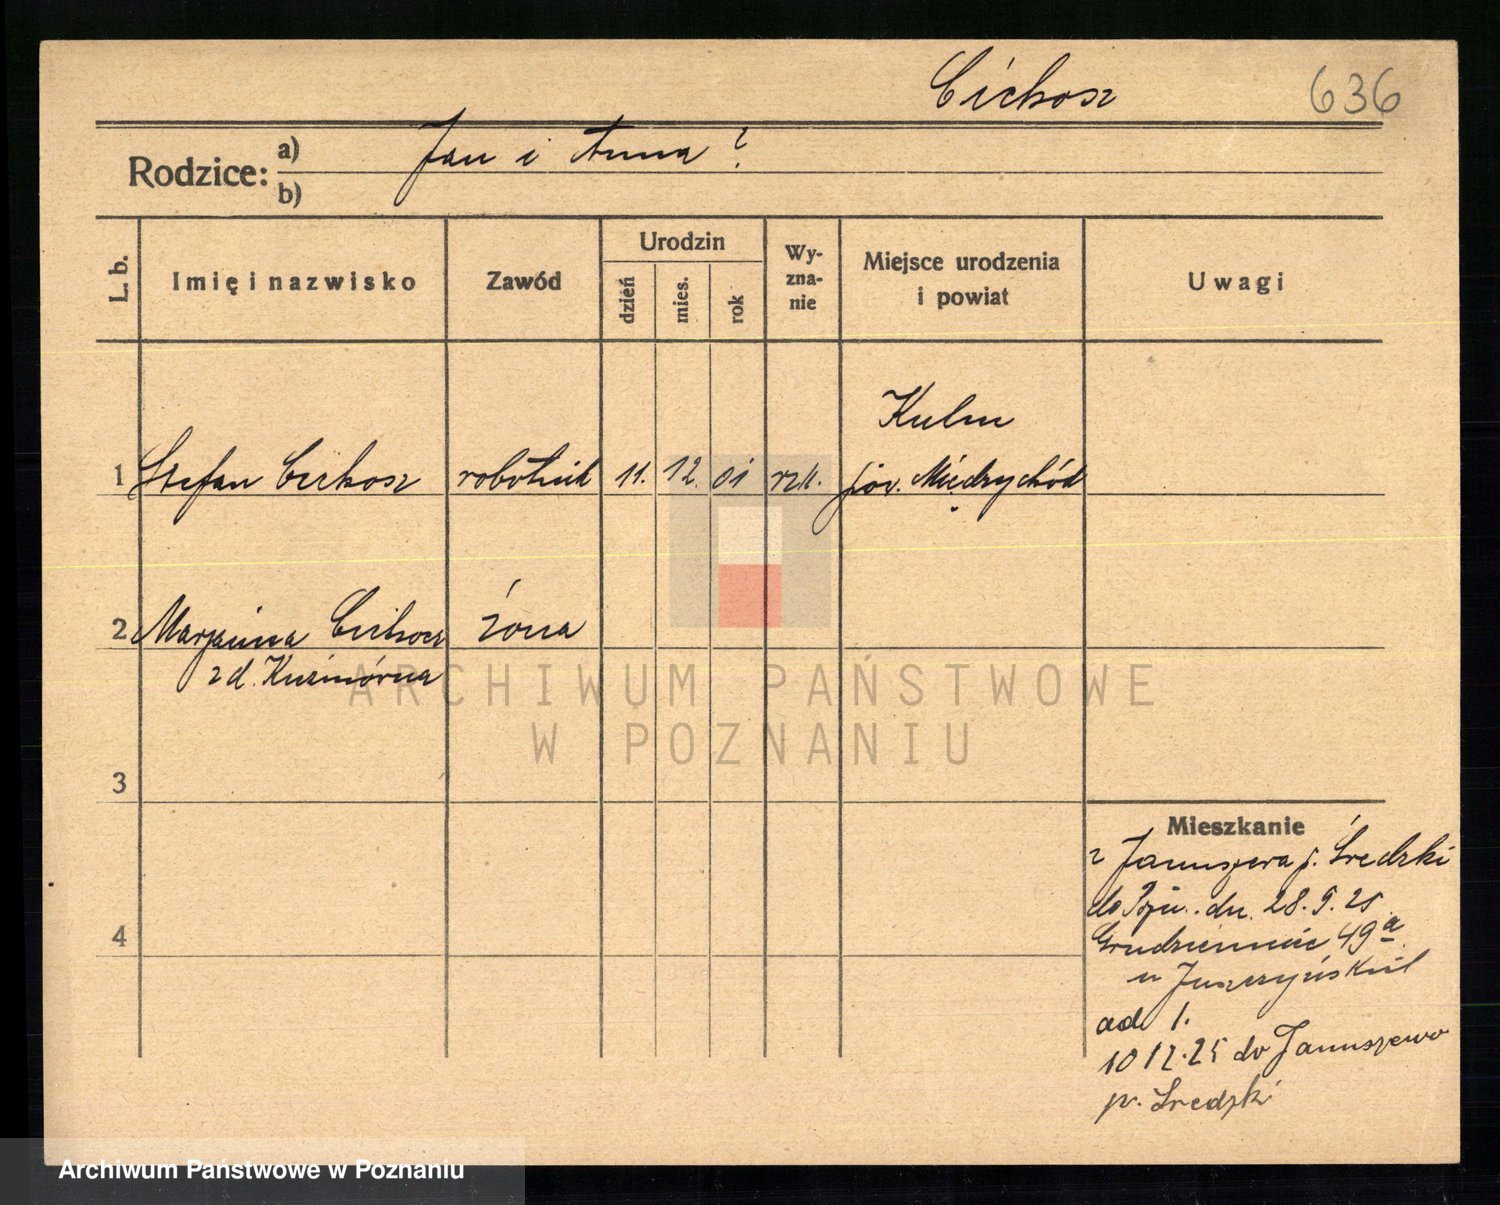 Cichosz 636
Rodzice: a) Jan i Anna ?
b)
L. b. Imię i nazwisko Zawód Urodzin dzień mies. rok Wy-zna-nie Miejsce urodzenia i powiat Uwagi
Kulm
1 Stefan Cichosz robotnik 11. 12. 01 rzk. pow. Międzychód
2 Marjanna Cichosz żona
z d. Kuźmówna
3
4
Mieszkanie
z Januszewa p. Średzki
do Pozn. dn. 28.9.25
Grudzieniec 49a
u
ad 1.
10 12.25 do Januszewo
p. Średzki
ARCHIWUM PAŃSTWOWE
W POZNANIU
Archiwum Państwowe w Poznaniu